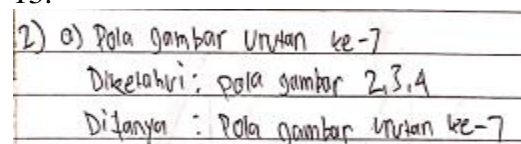 2) a) Pola gambar Urutan ke-7
Diketahui: pola gambar 2,3,4
Ditanya : Pola gambar urutan ke-7